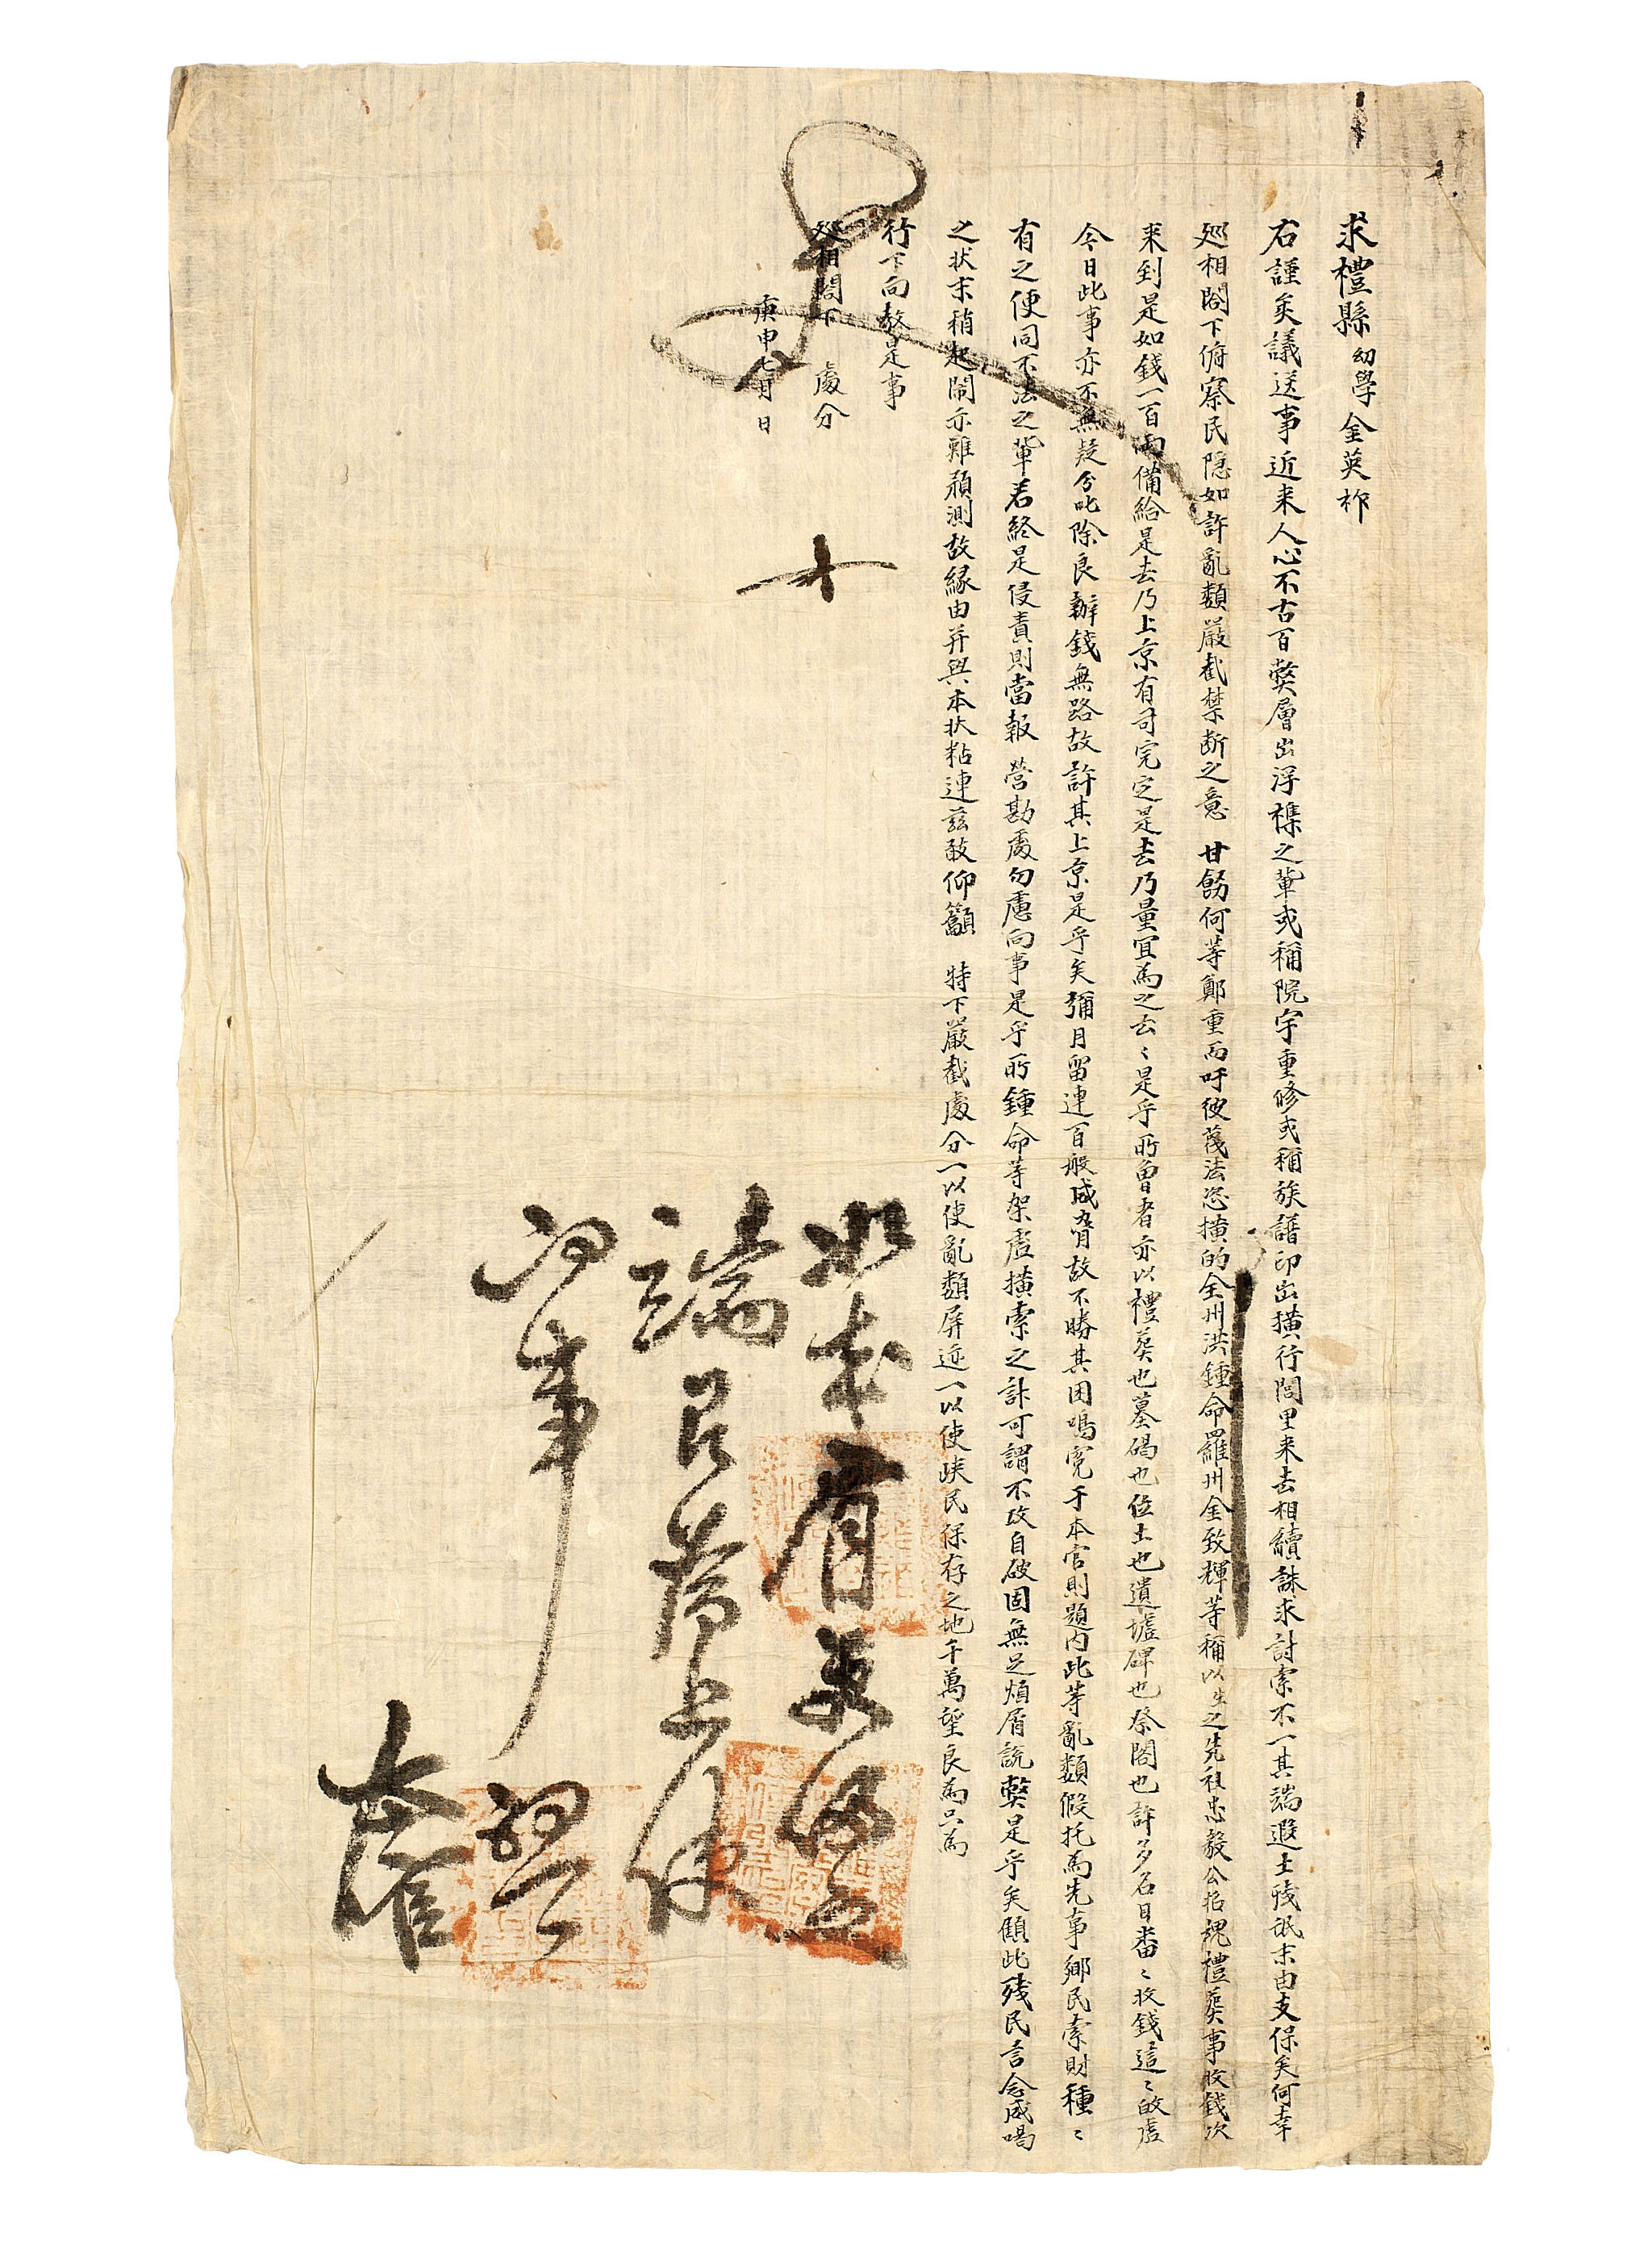 求禮縣 幼學 金英柞
右謹矣議送事近来人心不古百弊層出浮襍之輩或稱院宇重修或稱族譜印出横行閭里来去相續誅求討索不一其端遐土殘氓末由支保矣何幸
廵相閤下俯察民隐如許亂類嚴截禁断之意 甘飭何等鄭重而吁彼蔑法恣横的全州洪鍾命羅州金致輝等稱以生之先祖忠毅公招魂禮葬事收錢次
来到是如錢一百兩備給是去乃上京有司完定是去乃量宜爲之云〻是乎所曾者亦以禮葬也墓碣也位土也遺墟碑也祭閣也許多名目番〻收錢這〻皈虛
今日此事亦不無疑分叱除良辦錢無路故許其上京是乎矣彌月留連百般威脅故不勝其困鳴寃于本官則題内此等亂類假托爲先事鄉民索財種〻
有之使同不法之輩若終是侵責則當報 營勘處勿慮向事是乎所鍾命等架虛横索之計可謂不攻自破固無足煩屑説弊是乎矣顧此殘民言念威喝
之状末稍起鬧亦難預測故緣由并與本状粘連玆敢仰籲 特下嚴截處分一以使亂類屏迹一以使峽民保存之地千萬望良爲只爲
行下向敎是事
廵相閤下 處分
庚申七月 日
端
向事